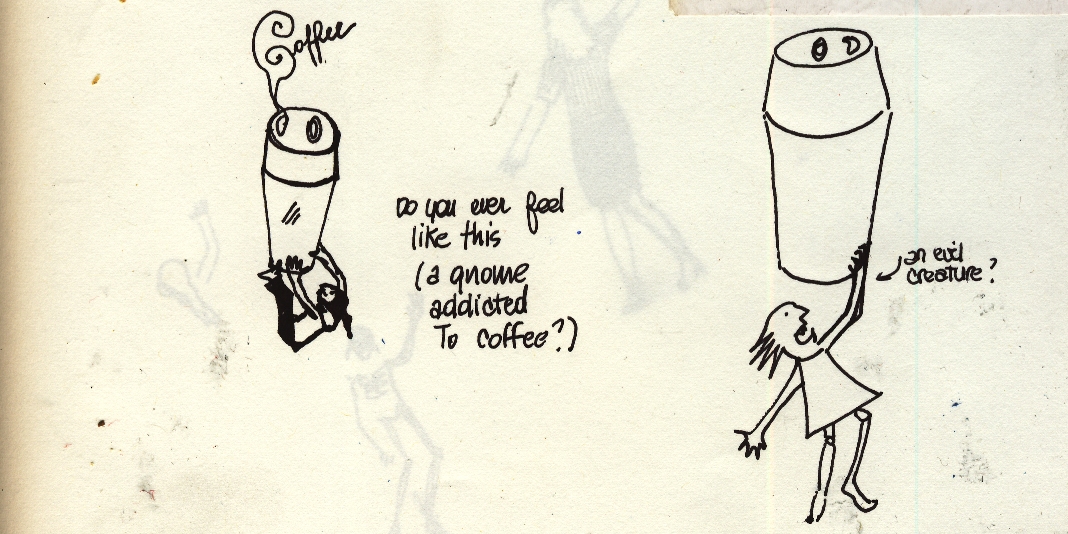 Coffee
Do you ever feel
like this
(a gnome
addicted
To coffee?)
an evil
creature?